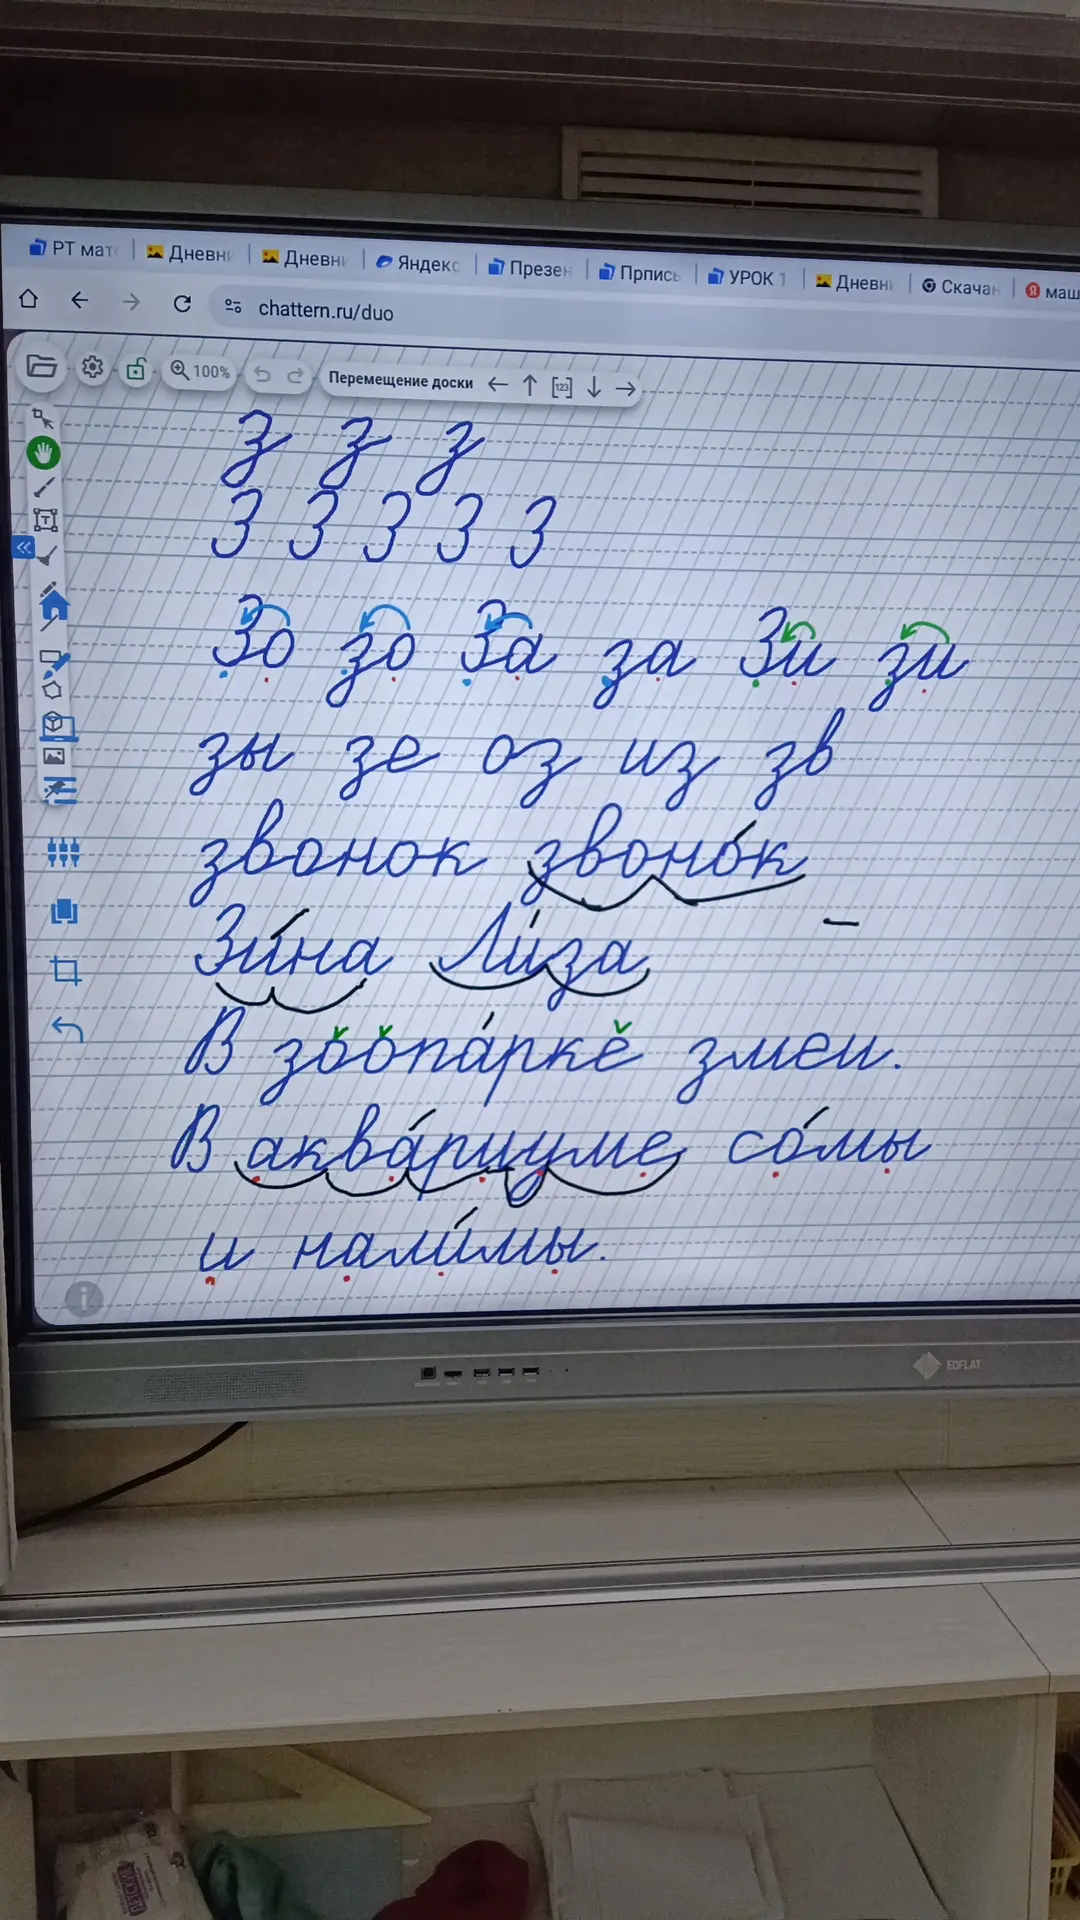 РТ мат Дневни Дневни Яндекс Презен Прпись УРОК 1 Дневни Скачан маш
chattern.ru/duo
100% Перемещение доски 123
з з з
З З З З З
Зо зо За за Зи зи
зы зе оз из зв
звонок звоно́к
Зи́на Ли́за
В зоопа́рке змеи.
В аква́риуме со́мы
и нали́мы.
EDFLAT